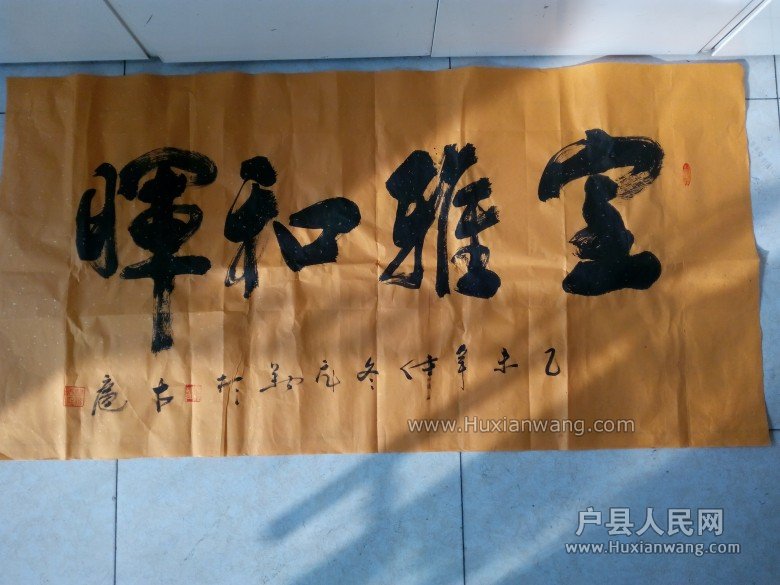 室雅和暉
乙未年仲冬 於古
www.Huxianwang.com
户县人民网
www.Huxianwang.com